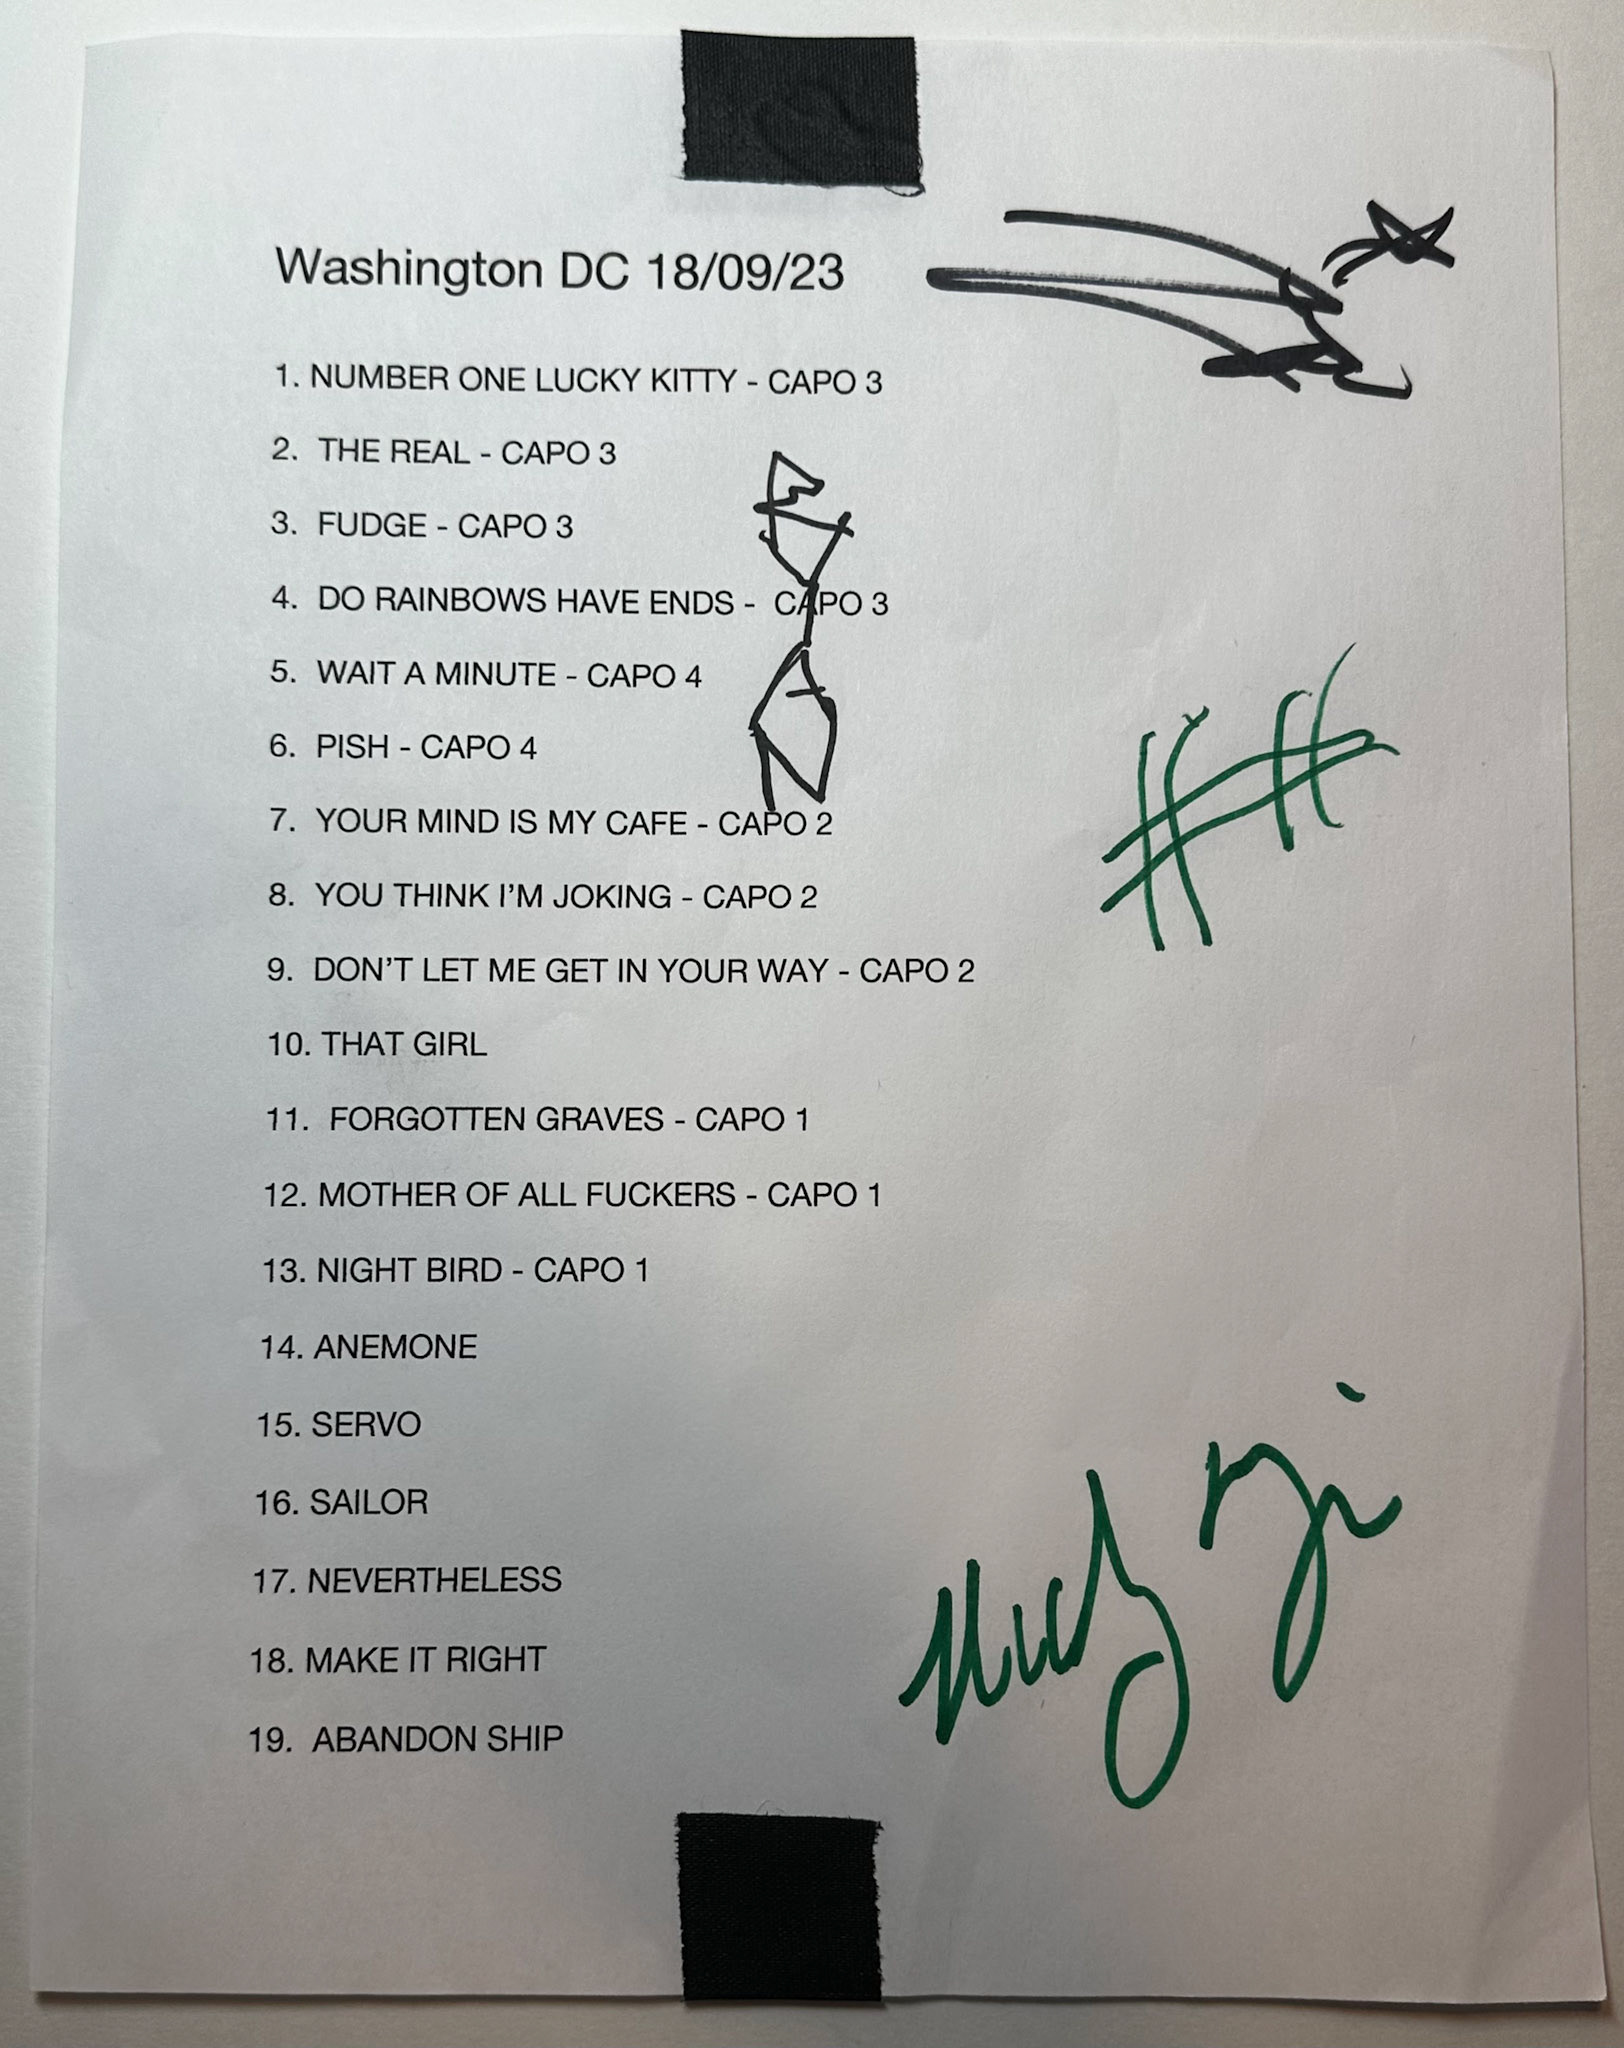 Washington DC 18/09/23
1. NUMBER ONE LUCKY KITTY - CAPO 3
2. THE REAL - CAPO 3
3. FUDGE - CAPO 3
4. DO RAINBOWS HAVE ENDS - CAPO 3
5. WAIT A MINUTE - CAPO 4
6. PISH - CAPO 4
7. YOUR MIND IS MY CAFE - CAPO 2
8. YOU THINK I'M JOKING - CAPO 2
9. DON'T LET ME GET IN YOUR WAY - CAPO 2
10. THAT GIRL
11. FORGOTTEN GRAVES - CAPO 1
12. MOTHER OF ALL FUCKERS - CAPO 1
13. NIGHT BIRD - CAPO 1
14. ANEMONE
15. SERVO
16. SAILOR
17. NEVERTHELESS
18. MAKE IT RIGHT
19. ABANDON SHIP